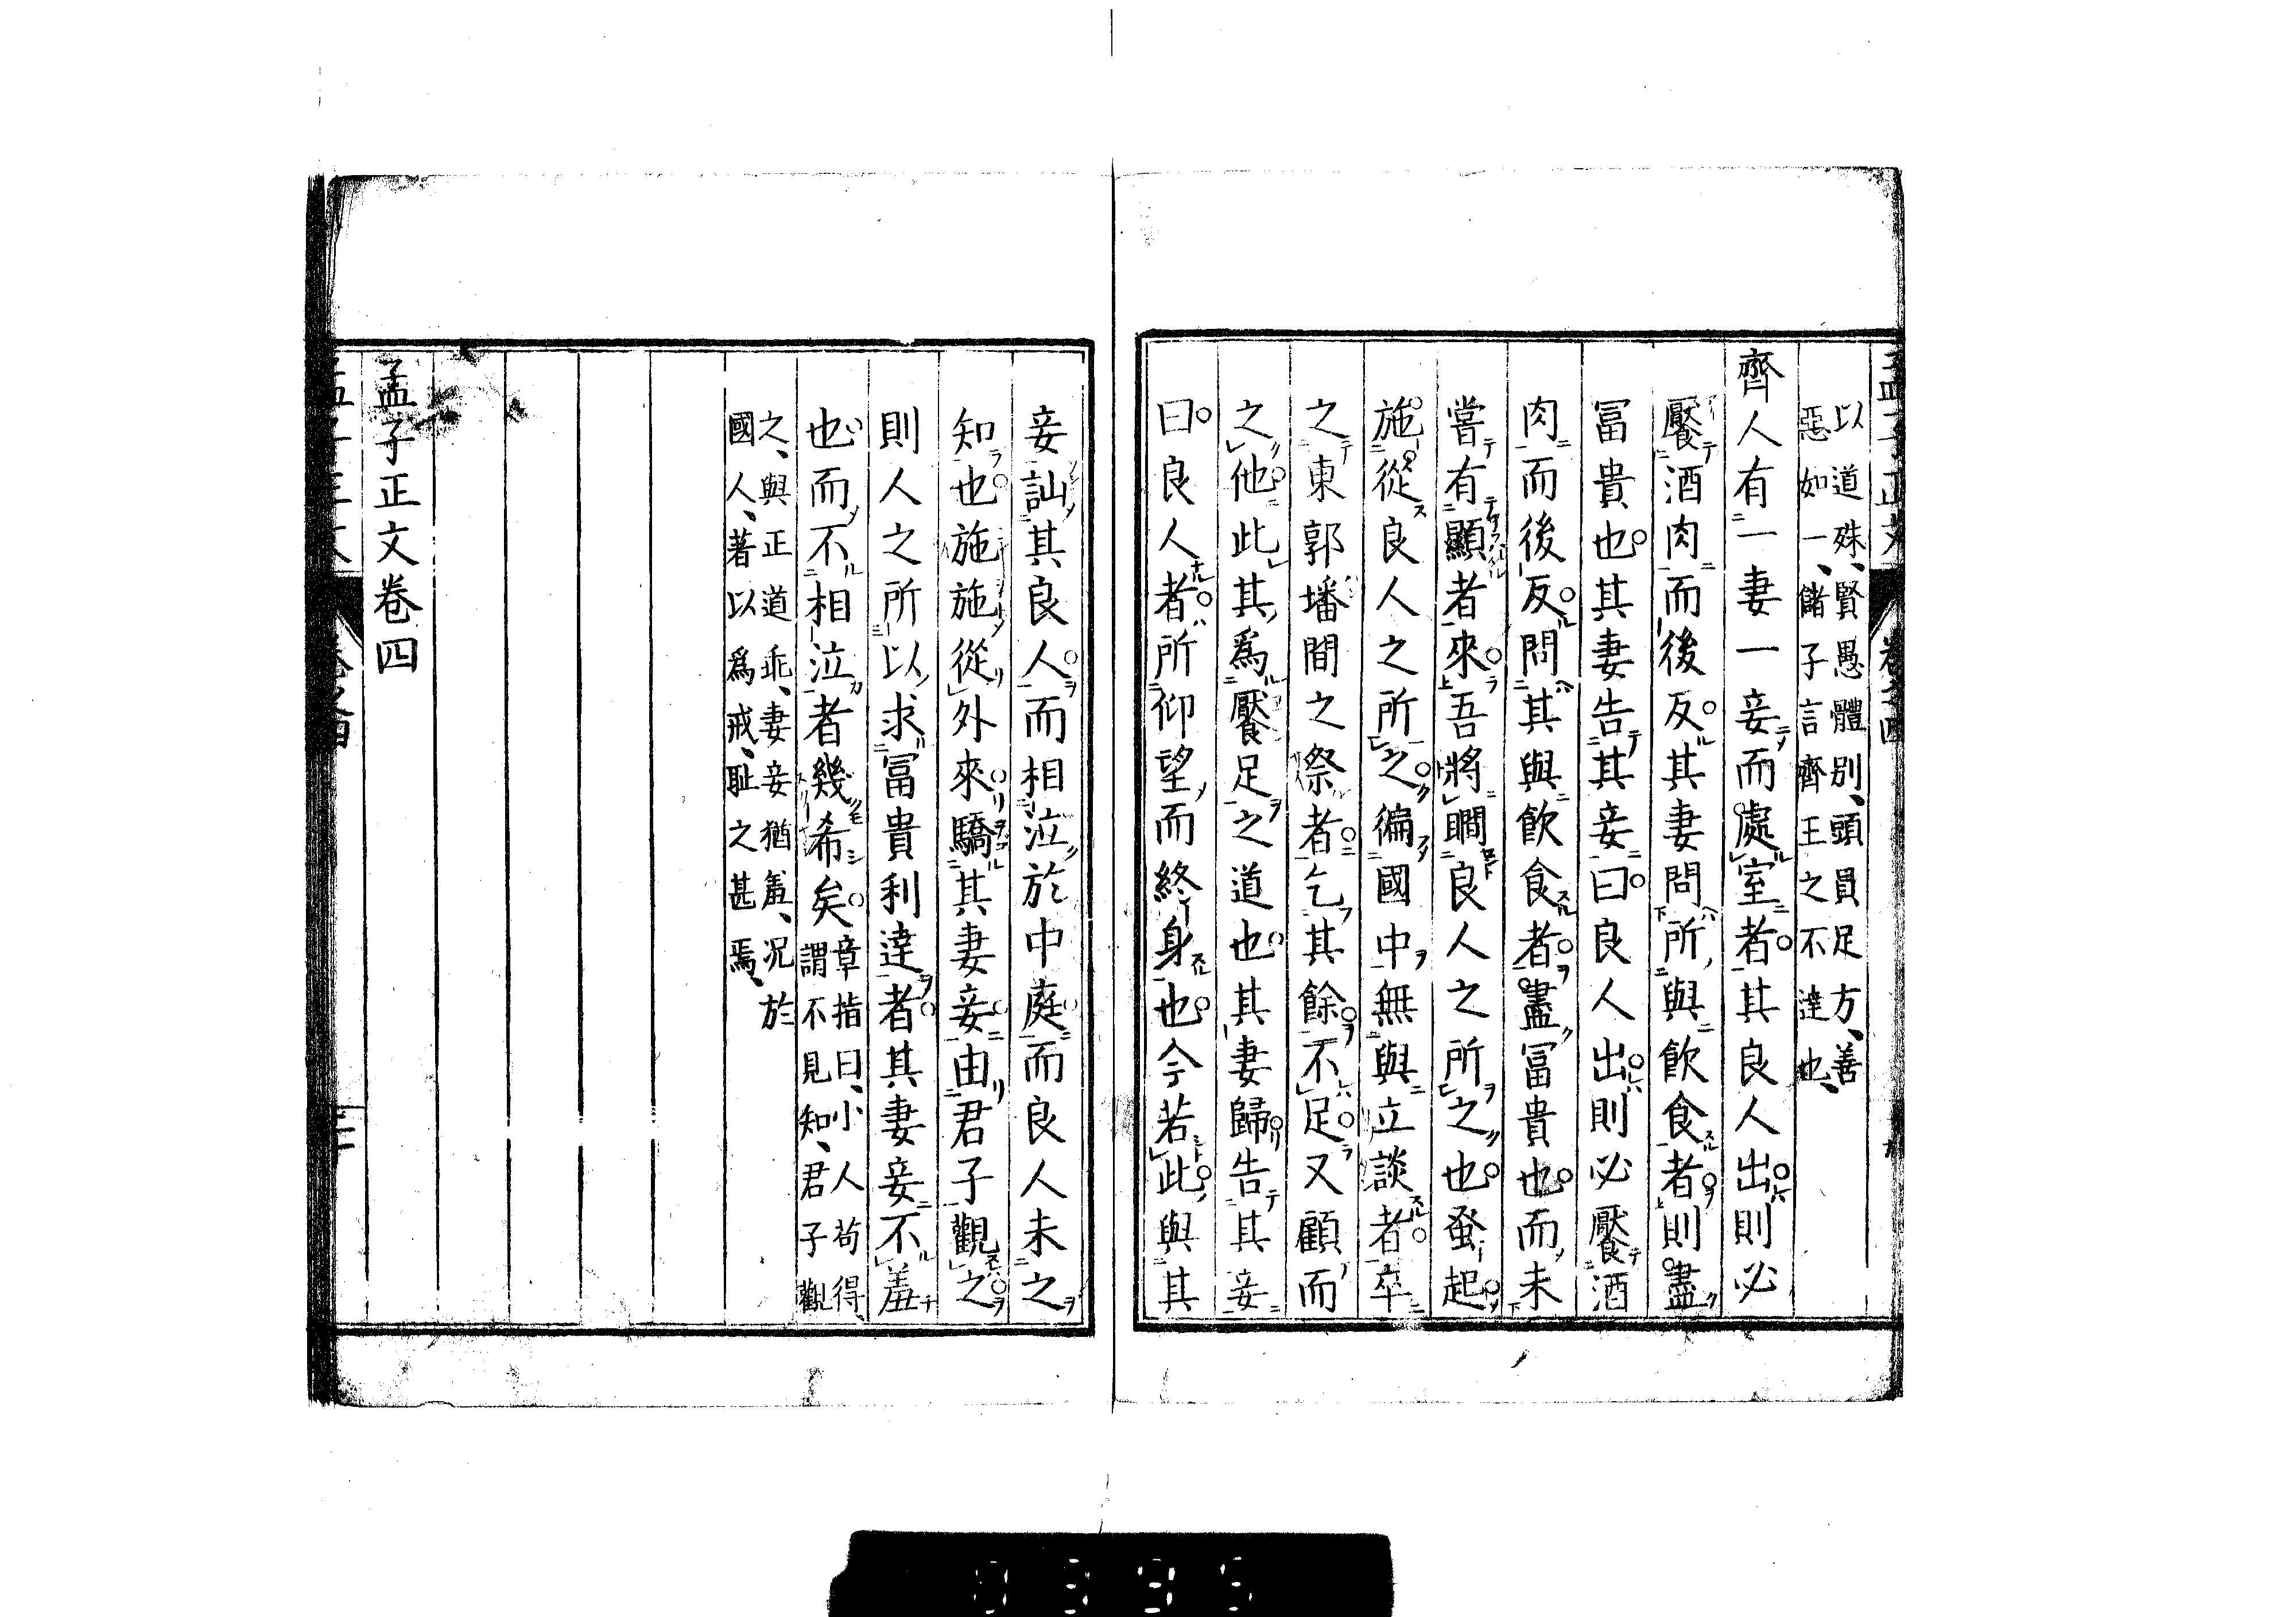 以道殊、賢愚體別、頭員足方、善
惡如一、儲子言齊王之不達也、
齊人有一妻一妾而處室者其良人出則必
饜酒肉而後反其妻問所與飲食者則盡
冨貴也其妻告其妾曰良人出則必饜酒
肉而後反問其與飲食者盡冨貴也而未
嘗有顯者來吾將瞷良人之所之也蚤起
施從良人之所之徧國中無與立談者卒
之東郭墦間之祭者乞其餘不足又顧而
之他此其爲饜足之道也其妻歸告其妾
曰良人者所仰望而終身也今若此與其
妾訕其良人而相泣於中庭而良人未之
知也施施從外來驕其妻妾由君子觀之
則人之所以求冨貴利達者其妻妾不羞
也而不相泣者幾希矣
章指曰、小人苟得、
謂不見知、君子觀
之、與正道乖、妻妾猶羞、况於
國人、著以爲戒、耻之甚焉、
孟子正文卷四